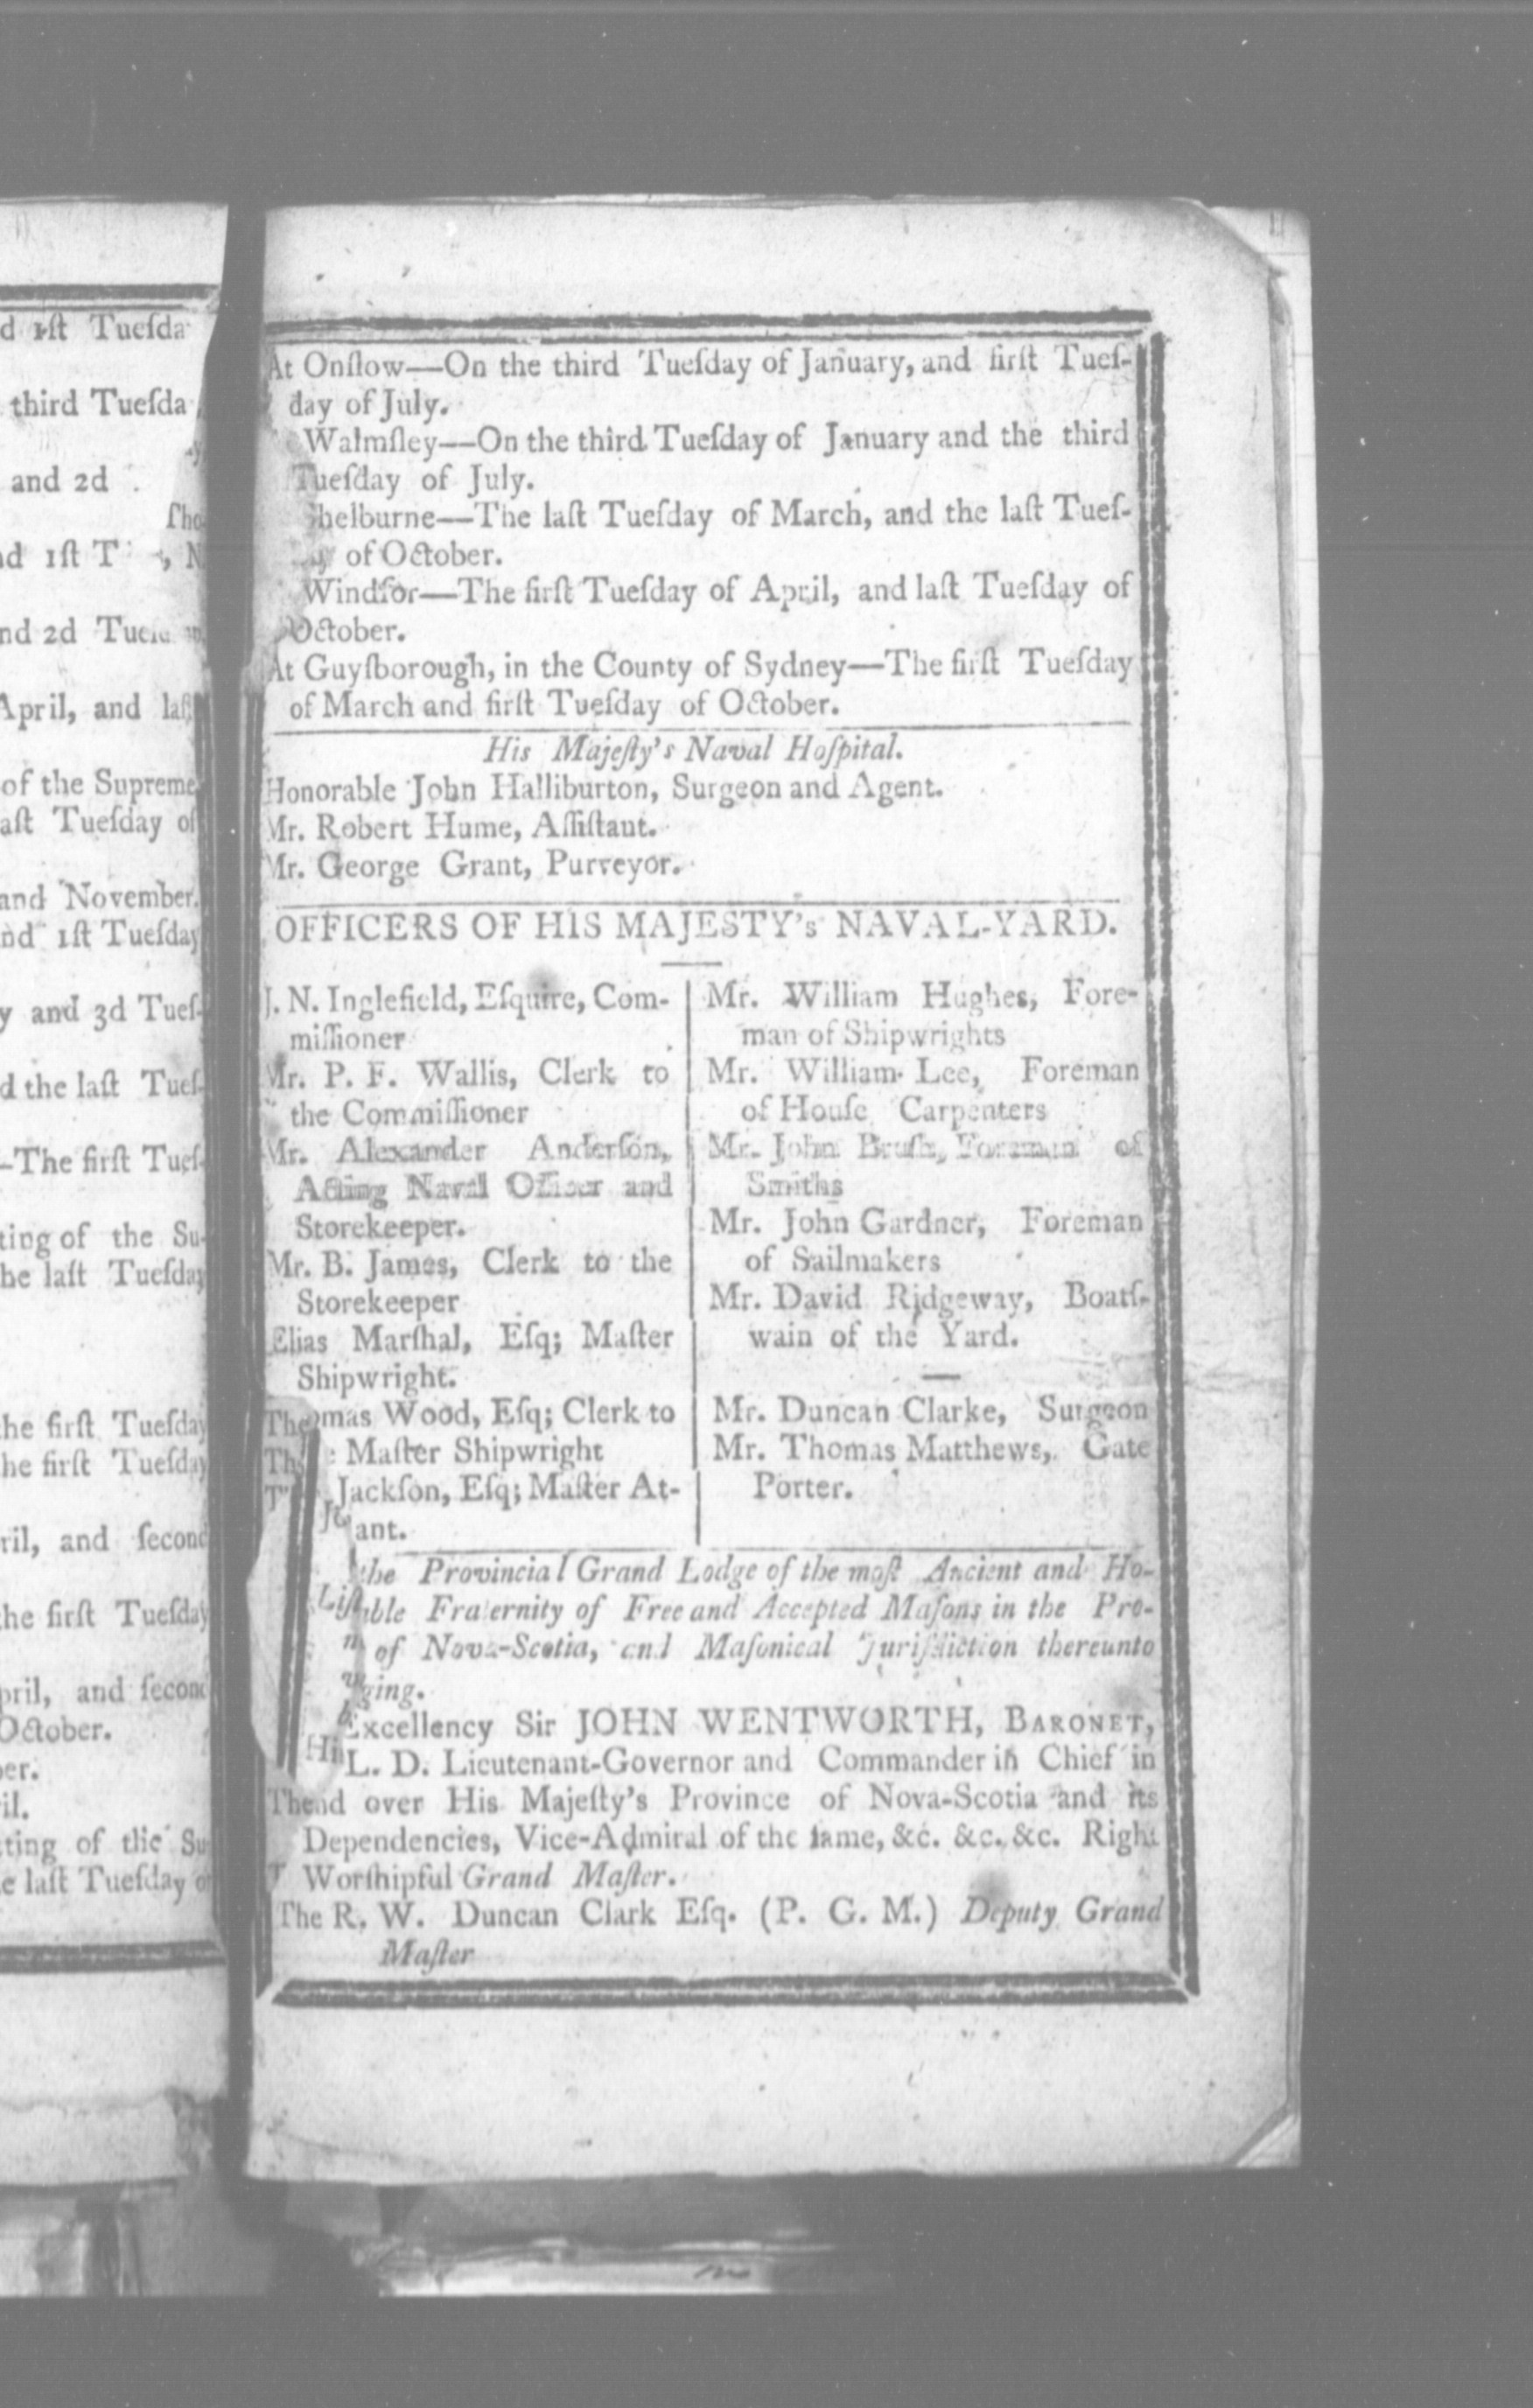 d 1ſt Tueſda
third Tueſda
and 2d
ſho
d 1ſt T , N
nd 2d Tue
April, and laſ
of the Supreme
aſt Tueſday of
and November.
nd 1ſt Tueſday
y and 3d Tueſ-
d the laſt Tueſ-
—The firſt Tueſ-
ting of the Su-
he laſt Tueſday
he firſt Tueſday
he firſt Tueſday
ril, and ſecond
the firſt Tueſday
pril, and ſecond
October.
er.
il.
ting of the Su
e laſt Tueſday o
At Onſlow—On the third Tueſday of January, and firſt Tueſ-
day of July.
Walmſley—On the third Tueſday of January and the third
Tueſday of July.
Shelburne—The laſt Tueſday of March, and the laſt Tueſ-
of October.
Windſor—The firſt Tueſday of April, and laſt Tueſday of
October.
At Guyſborough, in the County of Sydney—The firſt Tueſday
of March and firſt Tueſday of October.
His Majeſty's Naval Hoſpital.
Honorable John Halliburton, Surgeon and Agent.
Mr. Robert Hume, Aſſiſtant.
Mr. George Grant, Purveyor.
OFFICERS OF HIS MAJESTY's NAVAL-YARD.
J. N. Inglefield, Eſquire, Com-
miſſioner
Mr. P. F. Wallis, Clerk to
the Commiſſioner
Mr. Alexander Anderſon,
Acting Naval Officer and
Storekeeper.
Mr. B. James, Clerk to the
Storekeeper
Elias Marſhal, Eſq; Maſter
Shipwright.
Thomas Wood, Eſq; Clerk to
Maſter Shipwright
Jackſon, Eſq; Maſter At-
ant.
Mr. William Hughes, Fore-
man of Shipwrights
Mr. William Lee, Foreman
of Houſe Carpenters
Mr. John Bruſh, Foreman of
Smiths
Mr. John Gardner, Foreman
of Sailmakers
Mr. David Ridgeway, Boatſ-
wain of the Yard.
Mr. Duncan Clarke, Surgeon
Mr. Thomas Matthews, Gate
Porter.
Liſt the Provincial Grand Lodge of the moſt Ancient and Ho-
able Fraternity of Free and Accepted Maſons in the Pro-
of Nova-Scotia, and Maſonical Juriſdiction thereunto
ging.
His Excellency Sir JOHN WENTWORTH, BARONET,
L. D. Lieutenant-Governor and Commander in Chief in
and over His Majeſty's Province of Nova-Scotia and its
Dependencies, Vice-Admiral of the ſame, &c. &c. &c. Right
Worſhipful Grand Maſter.
The R. W. Duncan Clark Eſq. (P. G. M.) Deputy Grand
Maſter